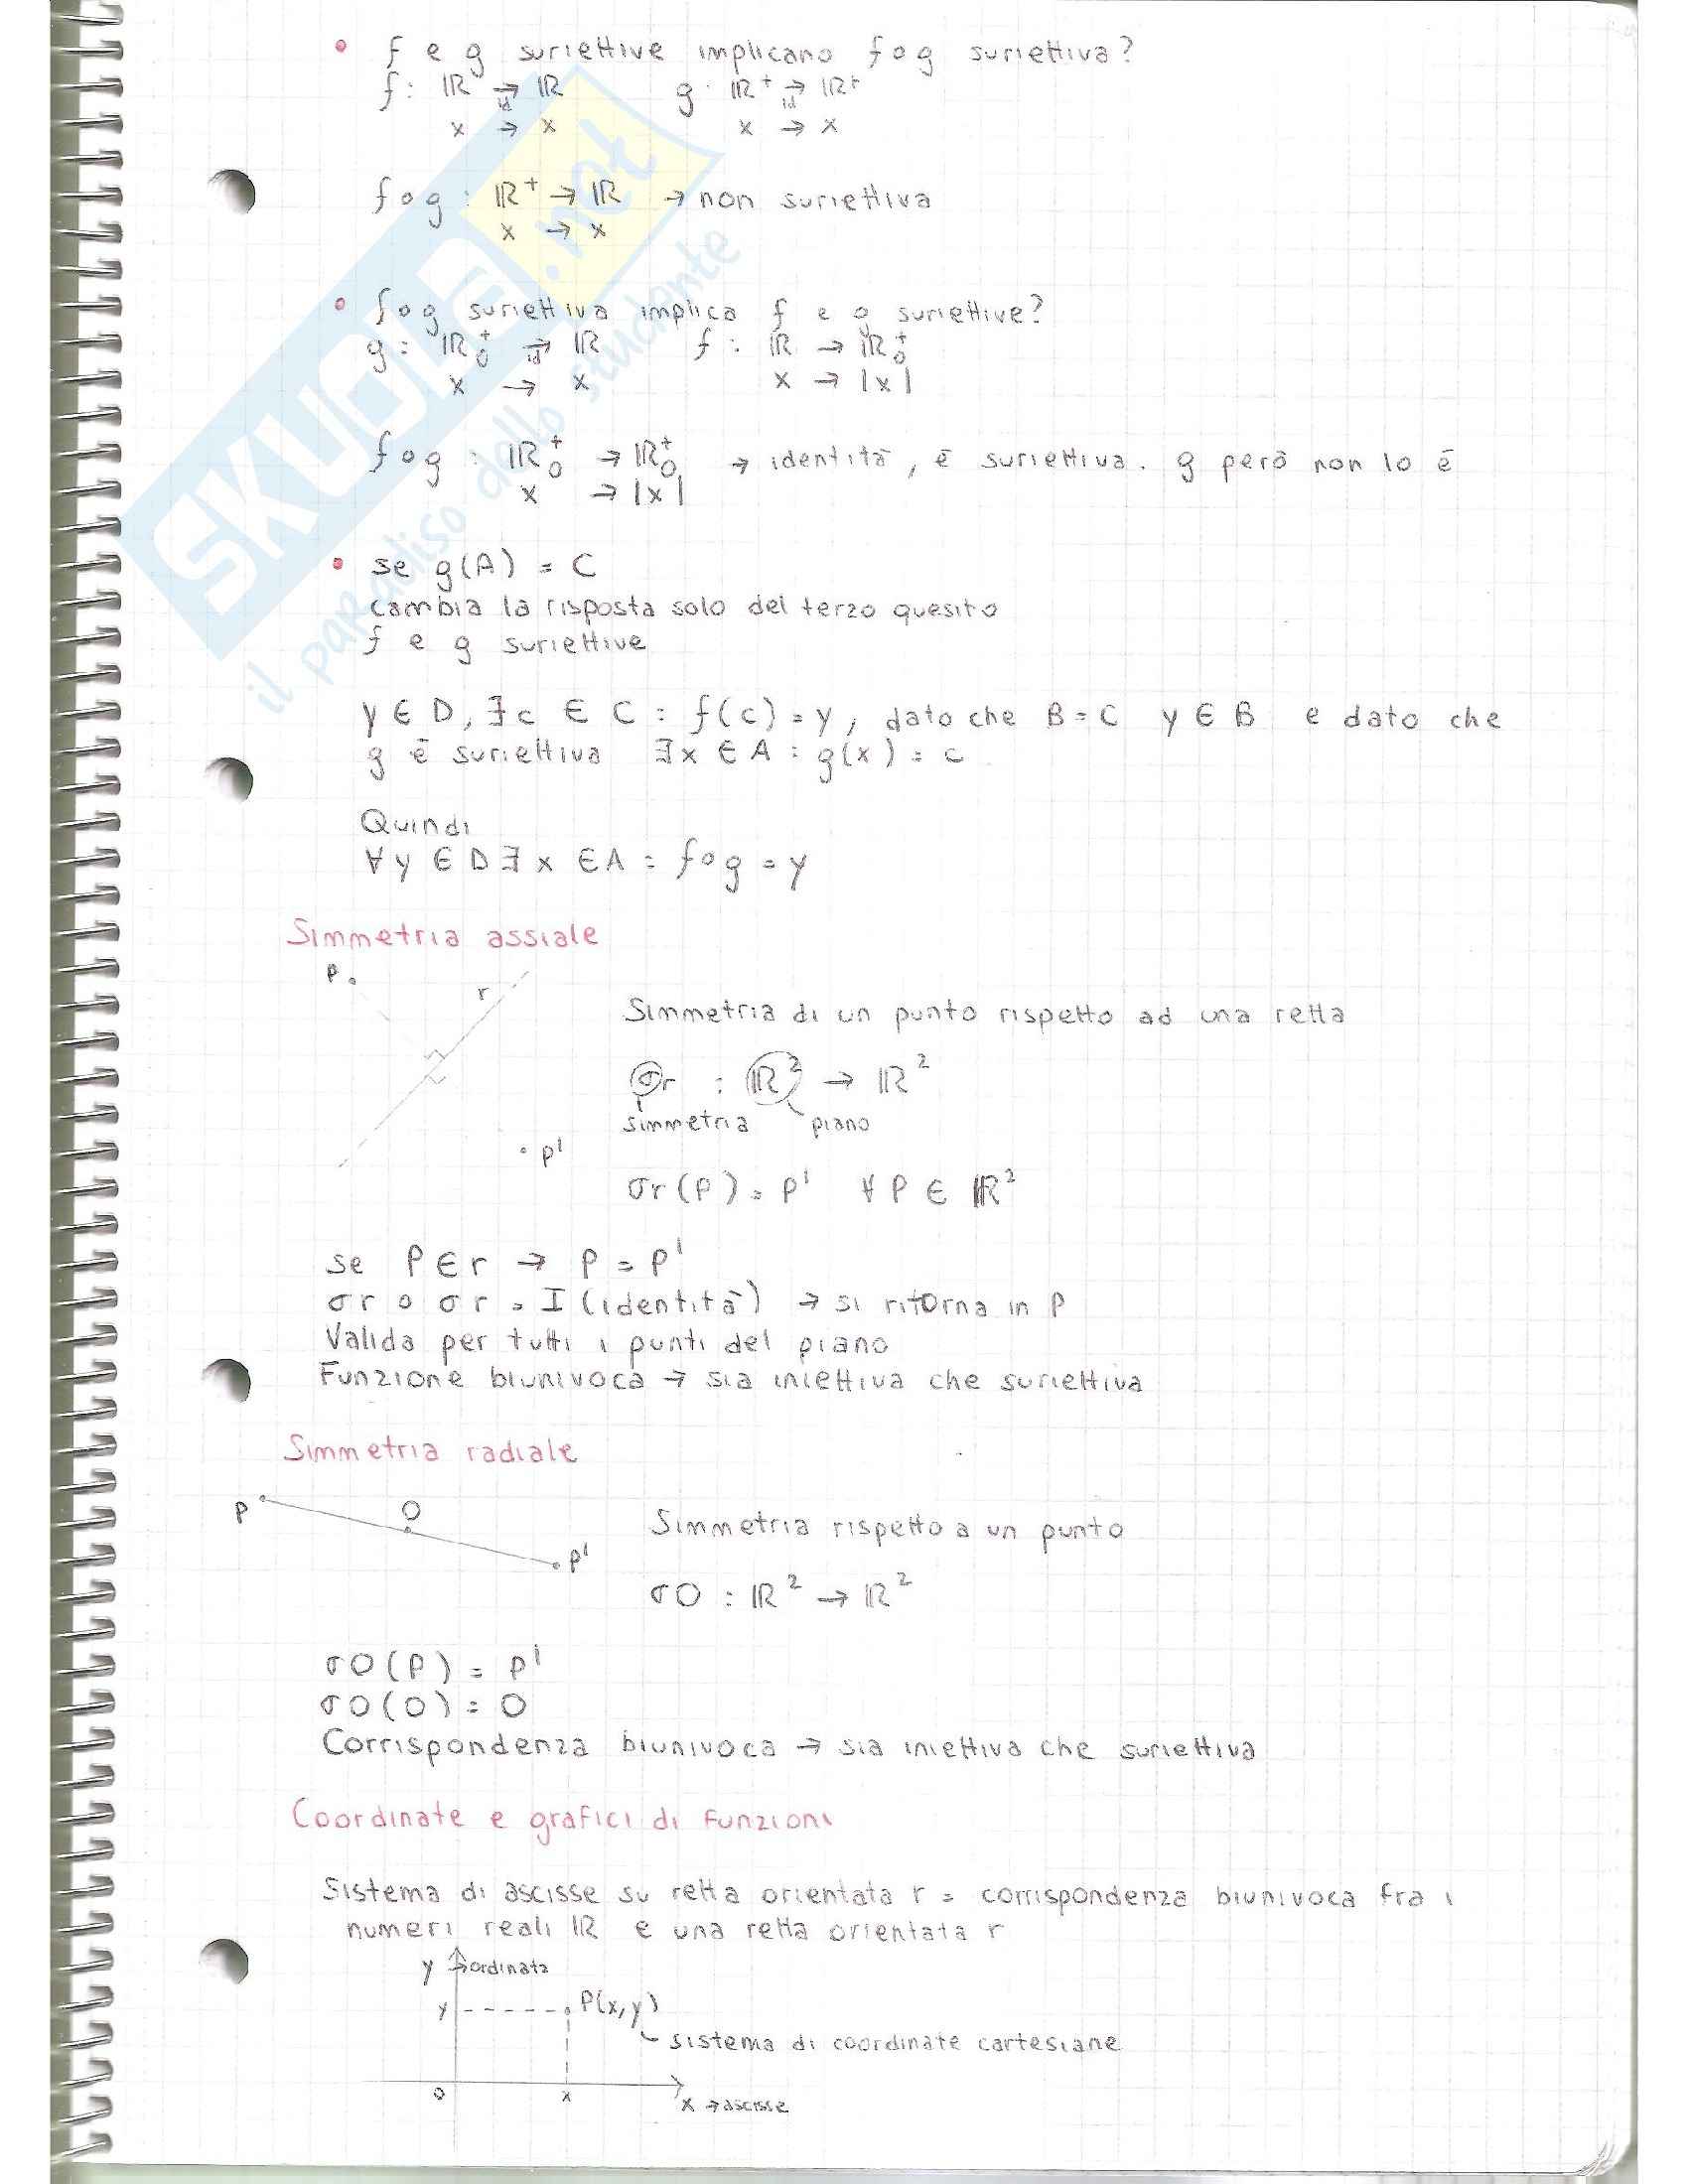 • f e g suriettive implicano f o g suriettiva?
f: ℝ →id ℝ    g: ℝ⁺ →id ℝ⁺
x → x    x → x
f o g : ℝ⁺ → ℝ → non suriettiva
x → x
• f o g suriettiva implica f e g suriettive?
g: ℝ₀⁺ →id ℝ    f: ℝ → ℝ₀⁺
x → x    x → |x|
f o g : ℝ₀⁺ → ℝ₀⁺ → identità, è suriettiva. g però non lo è
x → |x|
• se g(A) = C
cambia la risposta solo del terzo quesito
f e g suriettive
y ∈ D, ∃ c ∈ C : f(c) = y, dato che B = C y ∈ B e dato che
g è suriettiva ∃ x ∈ A : g(x) = c
Quindi
∀ y ∈ D ∃ x ∈ A : f o g = y
Simmetria assiale
P
r
P'
Simmetria di un punto rispetto ad una retta
σr : ℝ² → ℝ²
simmetria    piano
σr(P) = P' ∀ P ∈ ℝ²
se P ∈ r → P = P'
σr o σr = I (identità) → si ritorna in P
Valida per tutti i punti del piano
Funzione biunivoca → sia iniettiva che suriettiva
Simmetria radiale
P
O
P'
Simmetria rispetto a un punto
σO : ℝ² → ℝ²
σO(P) = P'
σO(O) = O
Corrispondenza biunivoca → sia iniettiva che suriettiva
Coordinate e grafici di funzioni
Sistema di ascisse su retta orientata r = corrispondenza biunivoca fra i
numeri reali ℝ e una retta orientata r
y → ordinata
y    P(x,y)
sistema di coordinate cartesiane
O    x    x → ascisse
SKUOLA.net
il paradiso dello studente